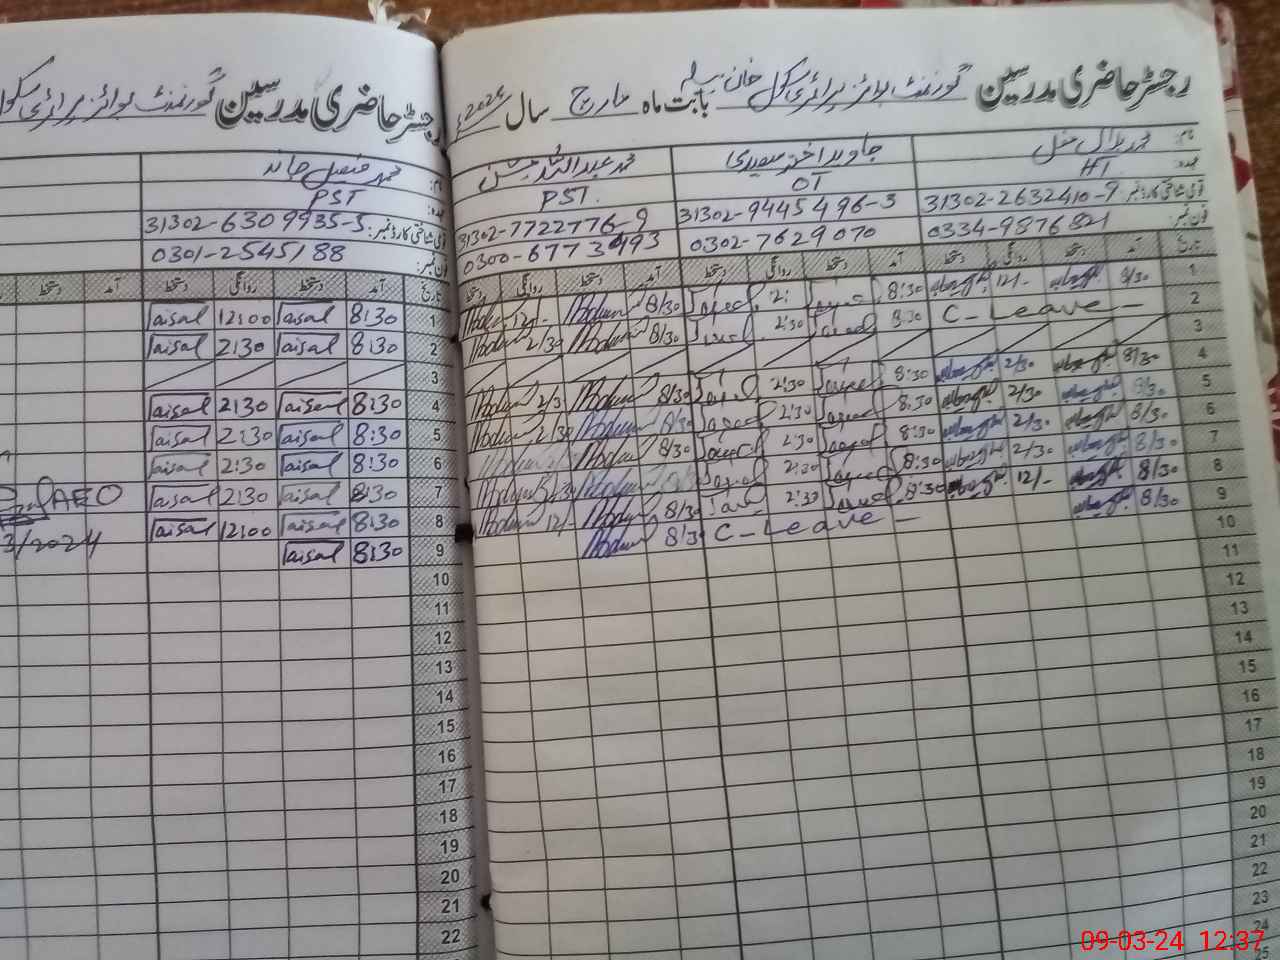 رجسٹر حاضری مدرسین گورنمنٹ بوائز پرائمری سکول خان بیلہ بابت ماہ مارچ سال 2024ء
نام: جاوید اختر سعیدی
عہدہ: HT OT PST.
قومی شناختی کارڈ نمبر: 31302-2632410-9 31302-9445496-3 31302-7722776-9
فون نمبر: 0334-9876821 0302-7629070 0300-6773493
تاریخ آمد دستخط روانگی دستخط آمد دستخط روانگی دستخط آمد دستخط روانگی دستخط
1 8/30 12/- 8:30 2: 8/30 12/-
2 C-Leave- 8:30 2:30 8/30 2/30
3
4 8/30 2/30 8:30 2:30 8/30 2/3
5 8/30 2/30 8:30 2:30 8/30 2/30
6 8/30 2/30 8:30 2:30 8/30
7 8/30 2/30 8:30 2:30 8/30 2/30
8 8/30 12/- 8:30 2:30 8/30 12/-
9 8/30 C-Leave- 8/30
10
11
12
13
14
15
16
17
18
19
20
21
22
23
24
25
رجسٹر حاضری مدرسین گورنمنٹ بوائز پرائمری سکول
نام: محمد فیصل
عہدہ: PST
قومی شناختی کارڈ نمبر: 31302-6309935-5
فون نمبر: 0301-2545188
تاریخ آمد دستخط روانگی دستخط آمد دستخط
1 8:30 Faisal 12:00 Faisal
2 8:30 Faisal 2:30 Faisal
3
4 8:30 Faisal 2:30 Faisal
5 8:30 Faisal 2:30 Faisal
6 8:30 Faisal 2:30 Faisal
7 8:30 Faisal 2:30 Faisal AEO
8 8:30 Faisal 12:00 Faisal 3/2024
9 8:30 Faisal
10
11
12
13
14
15
16
17
18
19
20
21
22
09-03-24 12:37